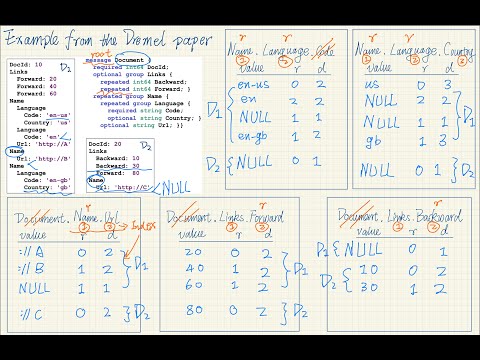 Example from the Dremel paper
D2
DocId: 10
Links
Forward: 20
Forward: 40
Forward: 60
Name
Language
Code: 'en-us'
Country: 'us'
Language
Code: 'en'
Url: 'http://A'
Name
Url: 'http://B'
Name
Language
Code: 'en-gb'
Country: 'gb'
root
message Document {
required int64 DocId;
optional group Links {
repeated int64 Backward;
repeated int64 Forward; }
repeated group Name {
repeated group Language {
required string Code;
optional string Country; }
optional string Url; }}
DocId: 20
D2
Links
Backward: 10
Backward: 30
Forward: 80
Name
Url: 'http://C'
NULL
r r
Name. Language. Code
① ②
value r d
en-us 0 2
en 2 2
NULL 1 1
en-gb 1 2
D1
NULL 0 1
D2
r r
Name. Language. Country
① ② ③
value r d
us 0 3
NULL 2 2
NULL 1 1
gb 1 3
D1
NULL 0 1 } D2
r
Document. Name. Url
① ② → Index
value r d
://A 0 2
://B 1 2
NULL 1 1
} D1
://C 0 2 } D2
r
Document. Links. Forward
① ②
value r d
20 0 2
40 1 2
60 1 2
} D1
80 0 2 } D2
r
Document. Links. Backward
① ②
value r d
D1 { NULL 0 1
D2 { 10 0 2
30 1 2